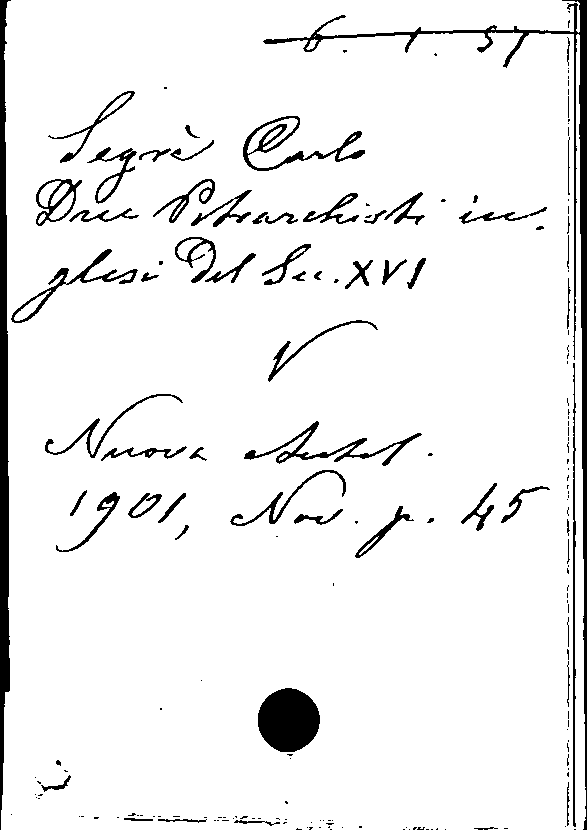 6. 1. 57
Segrè Carlo
Due Petrarchisti in-
glesi Del Sec. XVI
V
Nuova Antol.
1901, Nov. p. 45